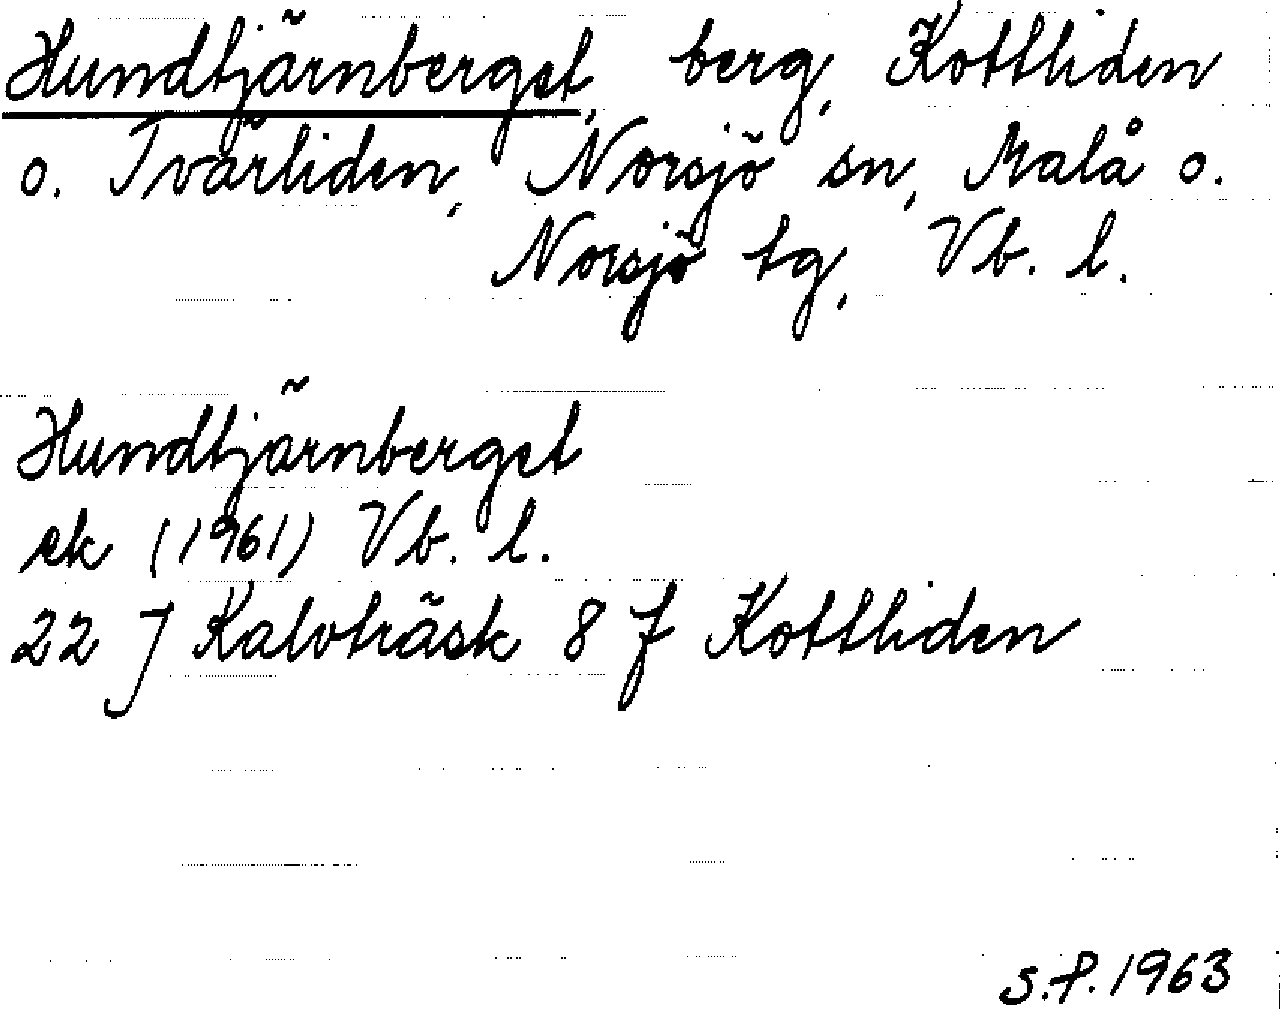 Hundtjärnberget, berg, Kottliden
o. Tvärliden, Norsjö sn, Malå o.
Norsjö tg, Vb. l.
Hundtjärnberget
ek (1961) Vb. l.
22 J Kalvträsk 8 f Kottliden
S.P. 1963